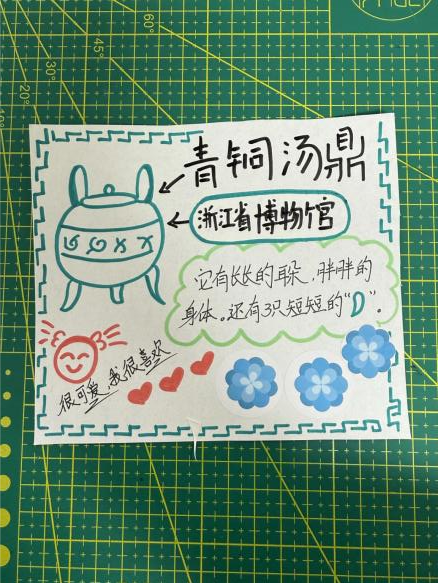 60°
45°
30°
20°
青铜汤鼎
浙江省博物馆
它有长长的耳朵，胖胖的
身体。还有3只短短的“ ”。
很可爱，我很喜欢